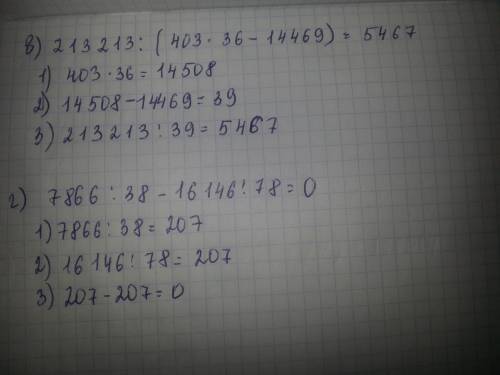 в) 213213 : (403 · 36 - 14469) = 5467
1) 403 · 36 = 14508
2) 14508 - 14469 = 39
3) 213213 : 39 = 5467
г) 7866 : 38 - 16146 : 78 = 0
1) 7866 : 38 = 207
2) 16146 : 78 = 207
3) 207 - 207 = 0